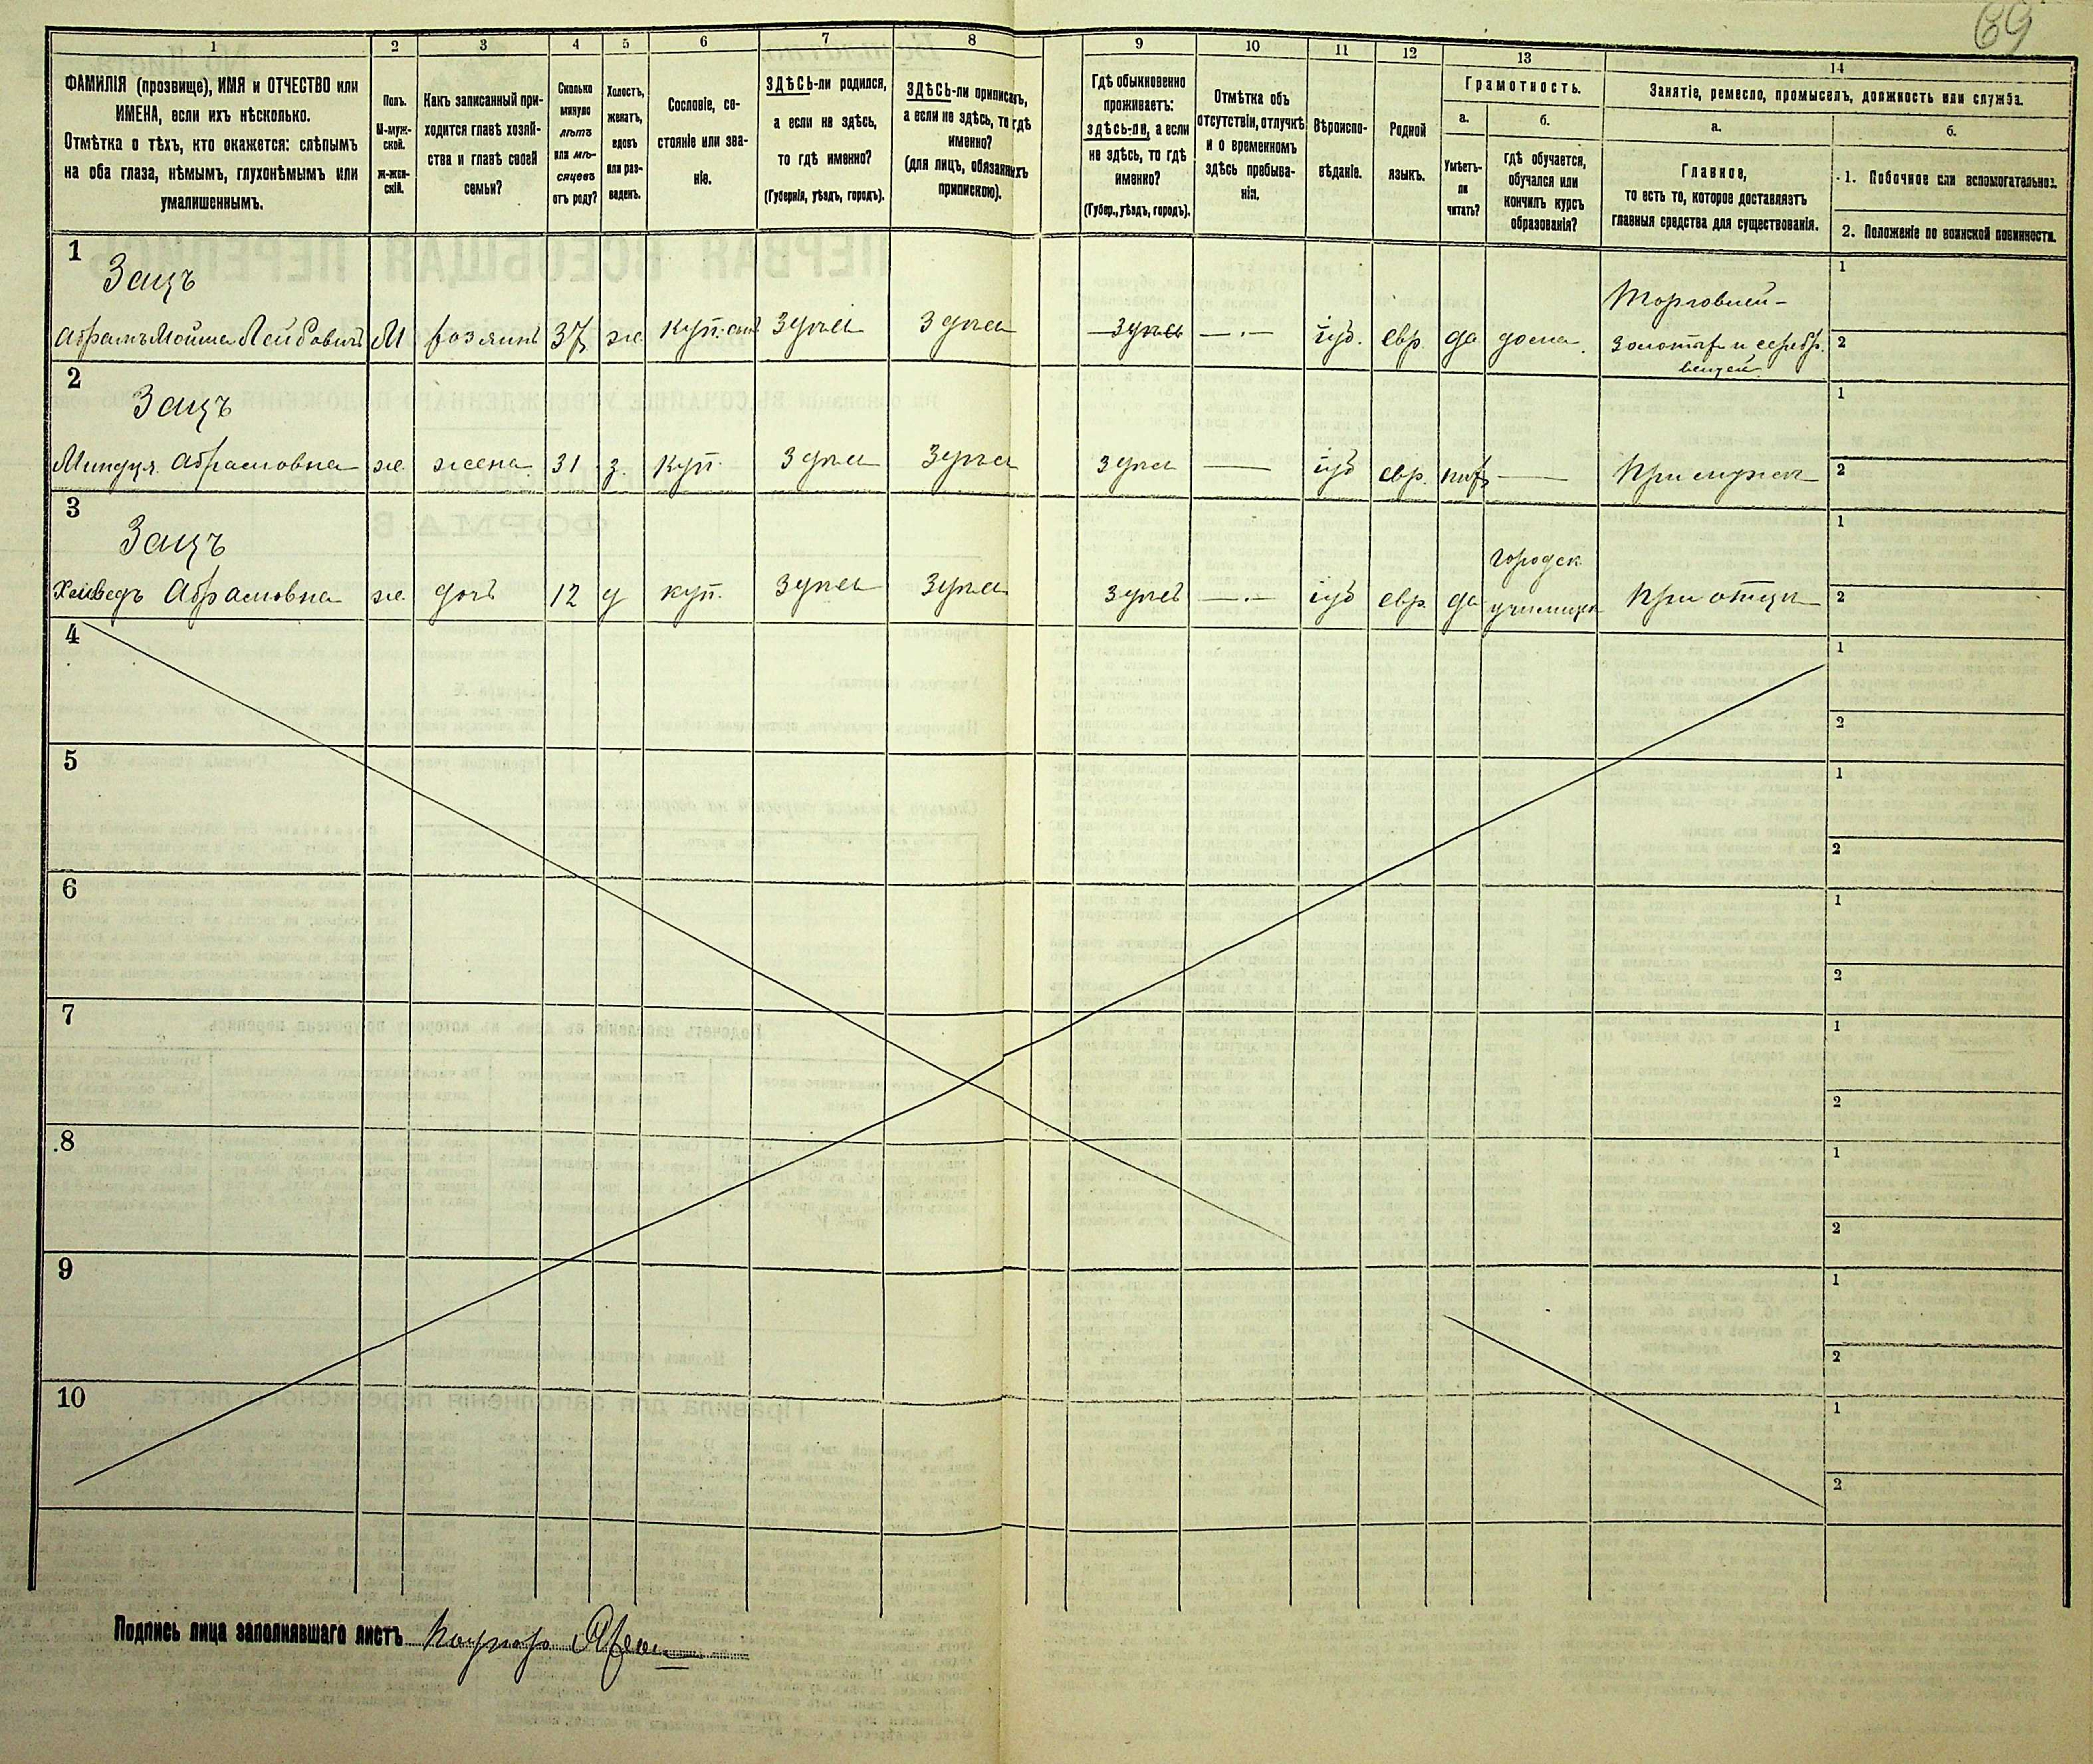 69
1 2 3 4 5 6 7 8 9 10 11 12 13 14
ФАМИЛІЯ (прозвище), ИМЯ и ОТЧЕСТВО или
ИМЕНА, если ихъ нѣсколько.
Отмѣтка о тѣхъ, кто окажется: слѣпымъ
на оба глаза, нѣмымъ, глухонѣмымъ или
умалишеннымъ.
Полъ.
М-муж-
ской.
Ж-жен-
скій.
Какъ записанный при-
ходится главѣ хозяй-
ства и главѣ своей
семьи?
Сколько
минуло
лѣтъ
или мѣ-
сяцевъ
отъ роду?
Холостъ,
женатъ,
вдовъ
или раз-
веденъ.
Сословіе, со-
стояніе или зва-
ніе.
ЗДѢСЬ-ли родился,
а если не здѣсь,
то гдѣ именно?
(Губернія, уѣздъ, городъ).
ЗДѢСЬ-ли приписанъ,
а если не здѣсь, то гдѣ
именно?
(для лицъ, обязанныхъ
припискою).
Гдѣ обыкновенно
проживаетъ:
здѣсь-ли, а если
не здѣсь, то гдѣ
именно?
(Губер., уѣздъ, городъ).
Отмѣтка объ
отсутствіи, отлучкѣ
и о временномъ
здѣсь пребыва-
ніи.
Вѣроиспо-
вѣданіе.
Родной
языкъ.
Грамотность.
а.
Умѣетъ-
ли
читать?
б.
гдѣ обучается,
обучался или
кончилъ курсъ
образованія?
Занятіе, ремесло, промыселъ, должность или служба.
а.
Главное,
то есть то, которое доставляетъ
главныя средства для существованія.
б.
1. Побочное или вспомогательное.
2. Положеніе по воинской повинности.
1
Зацъ
Абрамъ Мойше Лейбовичъ М хозяинъ 37 ж. куп. здѣсь здѣсь здѣсь —.— іуд. евр. да дома.
Торговлей
золотых и серебр.
вещей
1
2
2
Зацъ
Миндуя Абрамовна ж. жена 31 з. куп. здѣсь здѣсь здѣсь — іуд евр. нѣт — При мужѣ
1
2
3
Зацъ
Абрамовна ж. дочь 12 д куп. здѣсь здѣсь здѣсь —.— іуд евр. да
городск
училище
При отцѣ
1
2
4
1
2
5
1
2
6
1
2
7
1
2
8
1
2
9
1
2
10
1
2
Подпись лица заполнявшаго листъ